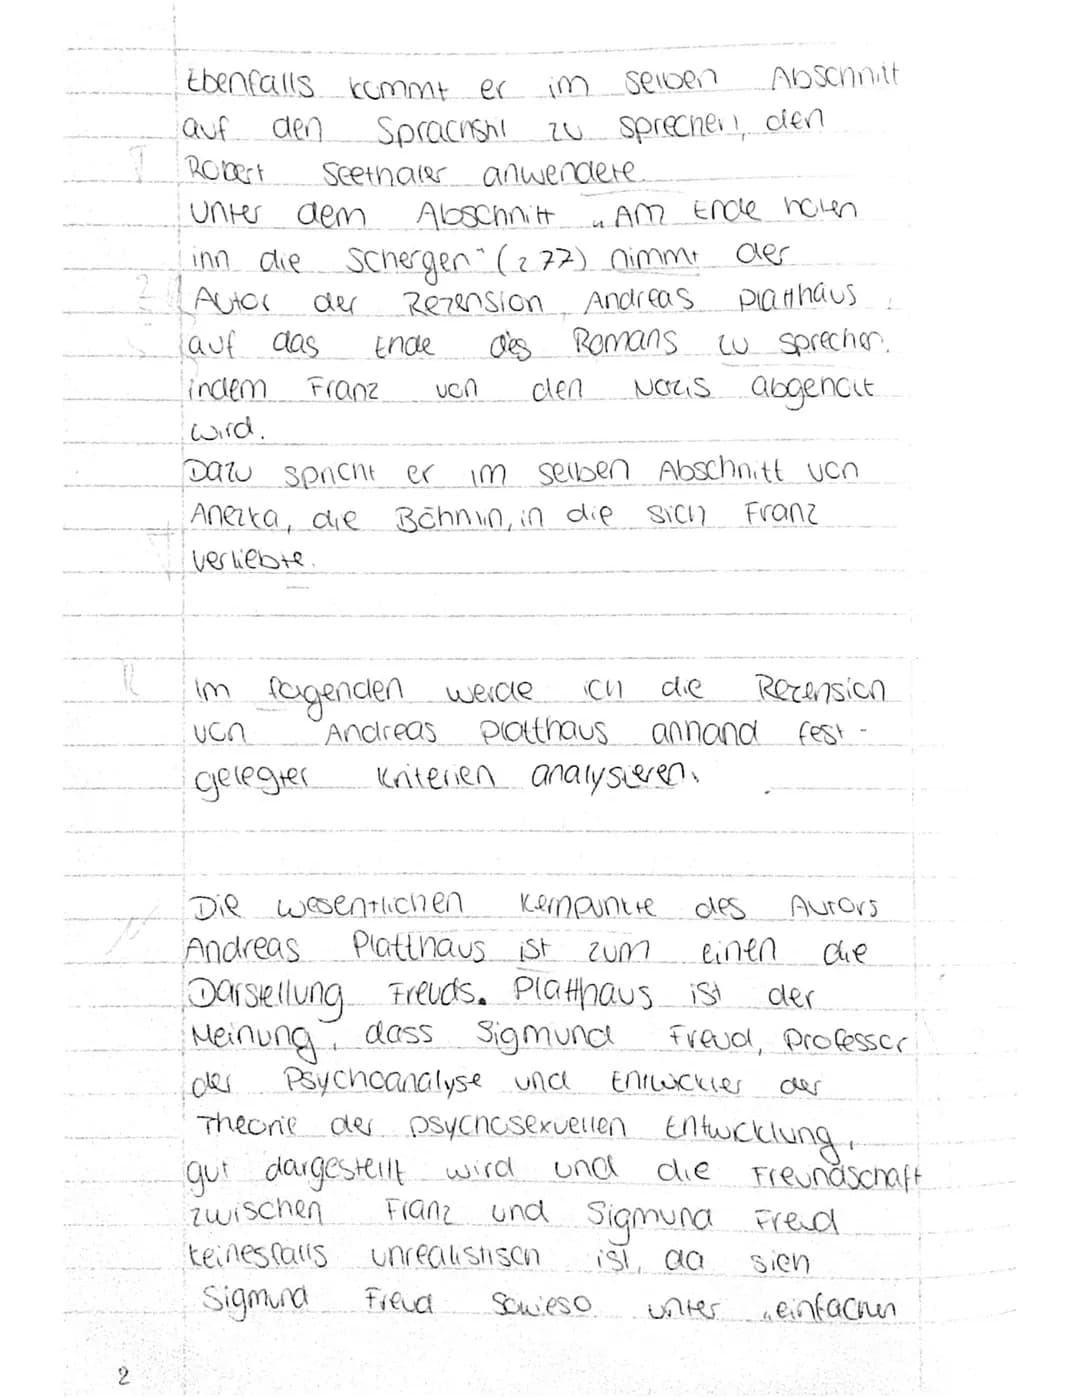 Ebenfalls kommt er im selben Abschnitt
auf den Sprachstil zu sprechen, den
Robert Seethaler anwendete.
Unter dem Abschnitt „Am Ende holen
ihn die Schergen" (Z 77) nimmt der
Autor der Rezension Andreas Platthaus
auf das Ende des Romans zu sprechen,
indem Franz von den Nazis abgeholt
wird.
Dazu spricht er im selben Abschnitt von
Anezka, die Böhmin, in die sich Franz
verliebte.
Im folgenden werde ich die Rezension
von Andreas Platthaus anhand fest-
gelegter Kriterien analysieren.
Die wesentlichen Kernpunkte des Autors
Andreas Platthaus ist zum einen die
Darstellung Freuds. Platthaus ist der
Meinung, dass Sigmund Freud, Professor
der Psychoanalyse und Entwickler der
Theorie der psychosexuellen Entwicklung,
gut dargestellt wird und die Freundschaft
zwischen Franz und Sigmund Freud
keinesfalls unrealistisch ist, da sich
Sigmund Freud sowieso unter „einfachen
2